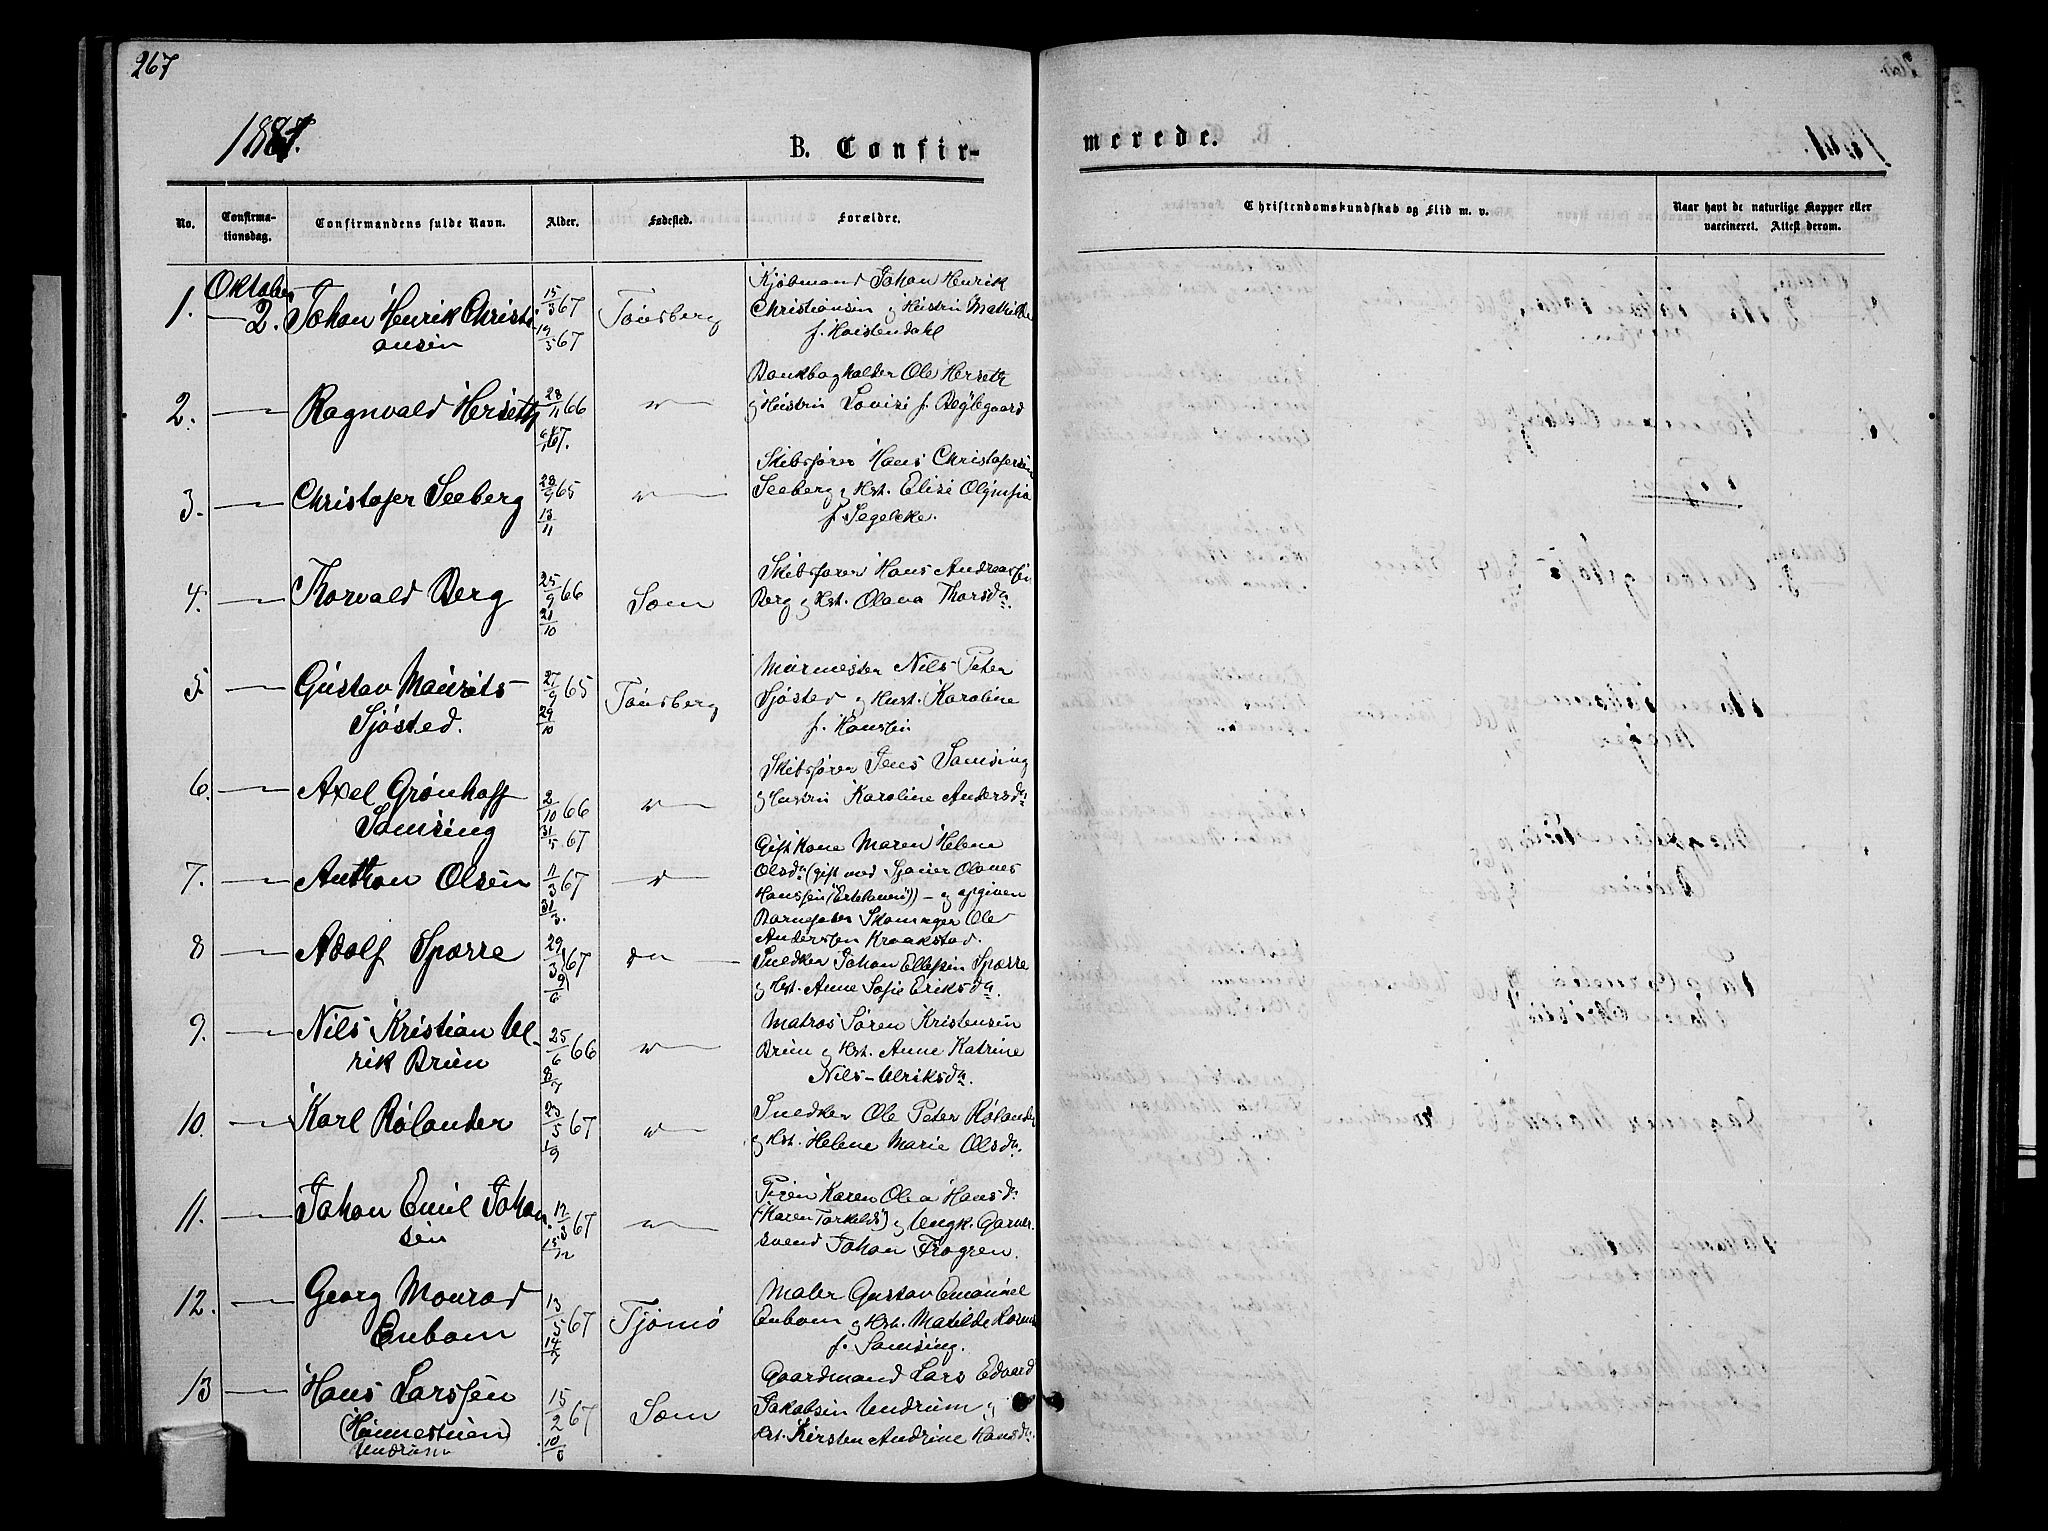 267
1881.
B. Confir-
merede.
No.
Confirma-
tionsdag.
Confirmandens fulde Navn.
Alder.
Fødested.
Forældre.
Christendomskundskab og Flid m. v.
Naar havt de naturlige Kopper eller
vaccineret. Attest derom.
Oktober
1. — 2. Johan Henrik Christi-
ansen
15/3 67
19/5 67
Tønsberg
Kjøbmand Johan Henrik
Christiansen og Hustru Mathilde
f. Hoistendahl
2. — Ragnvald Herseth
28/11 66
67.
Bankbogholder Ole Herseth
og Hustru Lovise f. Bøylegaard
3. — Christofer Seeberg
28/9 65
13/11
Skibsfører Hans Christofersen
Seeberg og Hst. Elise Olympia
f. Segelcke.
4. — Thorvald Berg
25/9 66
21/10
Sæm
Skibsfører Hans Andreassen
Berg og Hst. Olava Thorsda.
5. — Gustav Maurits
Sjøsted.
27/9 65
29/10
Tønsberg
Murmester Nils Peter
Sjøsted og Hust. Karoline
f. Hanssen
6. — Axel Grønhoff
Samsing
2/10 66
31/5 67
Skibsfører Jens Samsing
og Hustru Karoline Andersda
7. — Anthon Olsen
11/3 67
31/3.
Gift Kone Maren Helene
Olsda (gift med Olaves
Hanssen) — og opgiven
Barnefader Ole
Anderssen Kraakstad.
8 — Adolf Sparre
29/3 67
9/6
do —
Snedker Johan Ellefsen Sparre
og Hst. Anne Sofie Eriksda.
9. — Nils Kristian Ul-
rik Bruun
25/6 66
8/7
Matros Søren Kristensen
Bruun og Hst. Anne Katrine
Nils-Ulriksda.
10. — Karl Rølander
23/5 67
1/9
Snedker Ole Peter Rølander
og Hst. Helene Marie Olsda.
11. — Johan Emil Johan-
sen
67
15/12
Pigen Karen Olea Hansda
(Karen Torkelds) og Ungk. Garver-
svend Johan Frogren.
12. — Georg Monrad
Enbom
13/5 67
14/7
Tjømø
Maler Gustav Emanuel
Enbom og Hst. Matilde
f. Samsing.
13 — Hans Larssen
(Hunnestuen)
Undrum
15/2 67
Sæm
Gaardmand Lars Edvard
Jakobsen Undrum og
Hst. Kirsten Andrine Hansda.